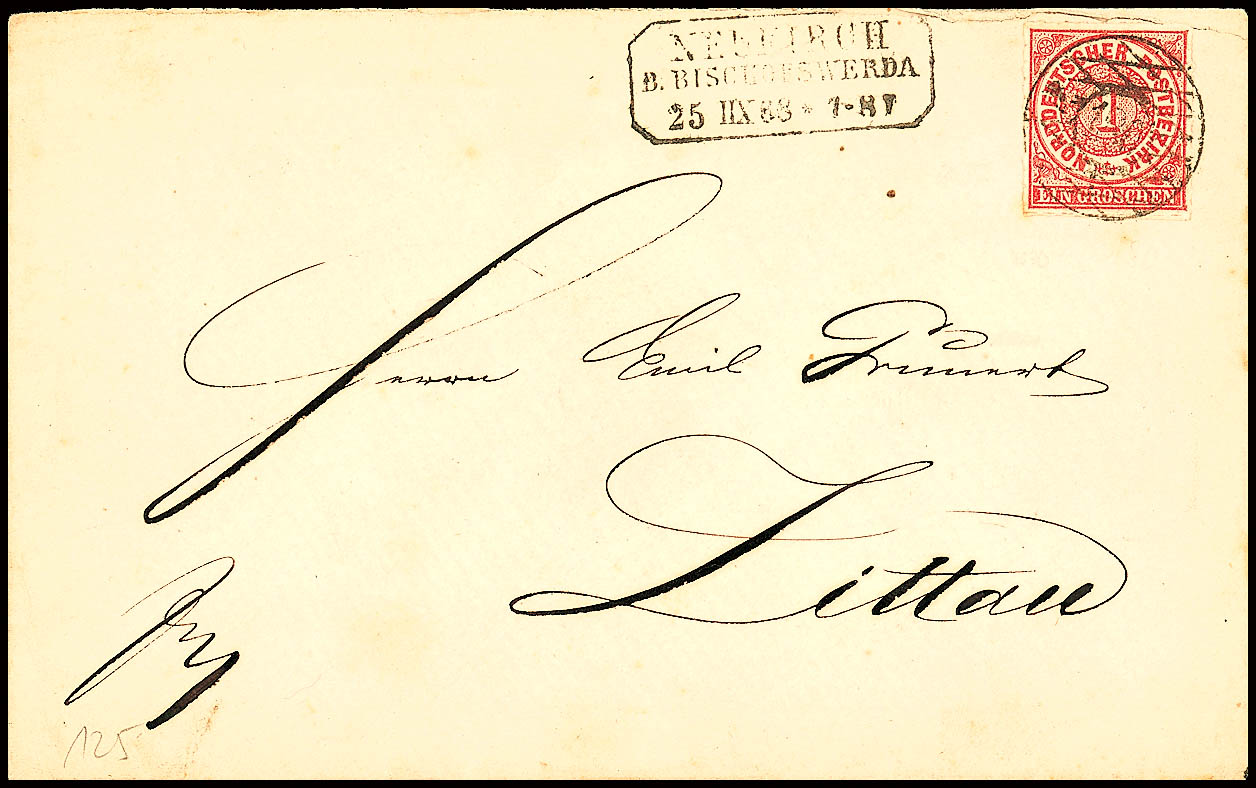 NEUKIRCH
B. BISCHOFSWERDA
25 IIX 68 * 7-8 V
NORDDEUTSCHER POSTBEZIRK
1
EIN GROSCHEN
Herrn Emil Grunert
Zittau
125